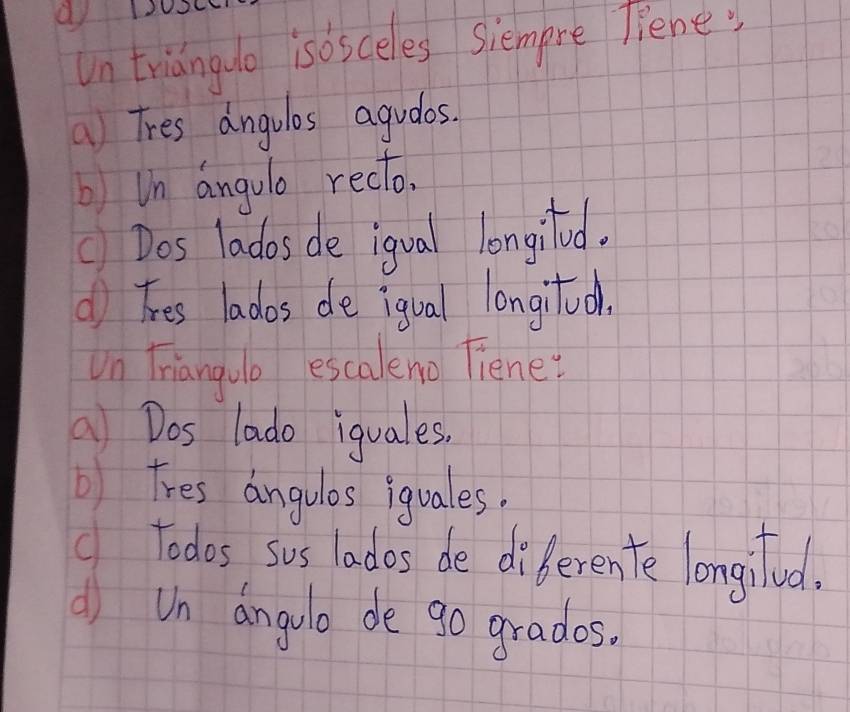 Un triángulo isósceles siempre Tiene:
a) Tres ángulos agudos.
b) Un ángulo recto.
c) Dos lados de igual longitud.
d) Tres lados de igual longitud.
Un Triangulo escaleno Tiene:
a) Dos lado iguales.
b) Tres ángulos iguales.
c) Todos sus lados de diferente longitud.
d) Un ángulo de 90 grados.